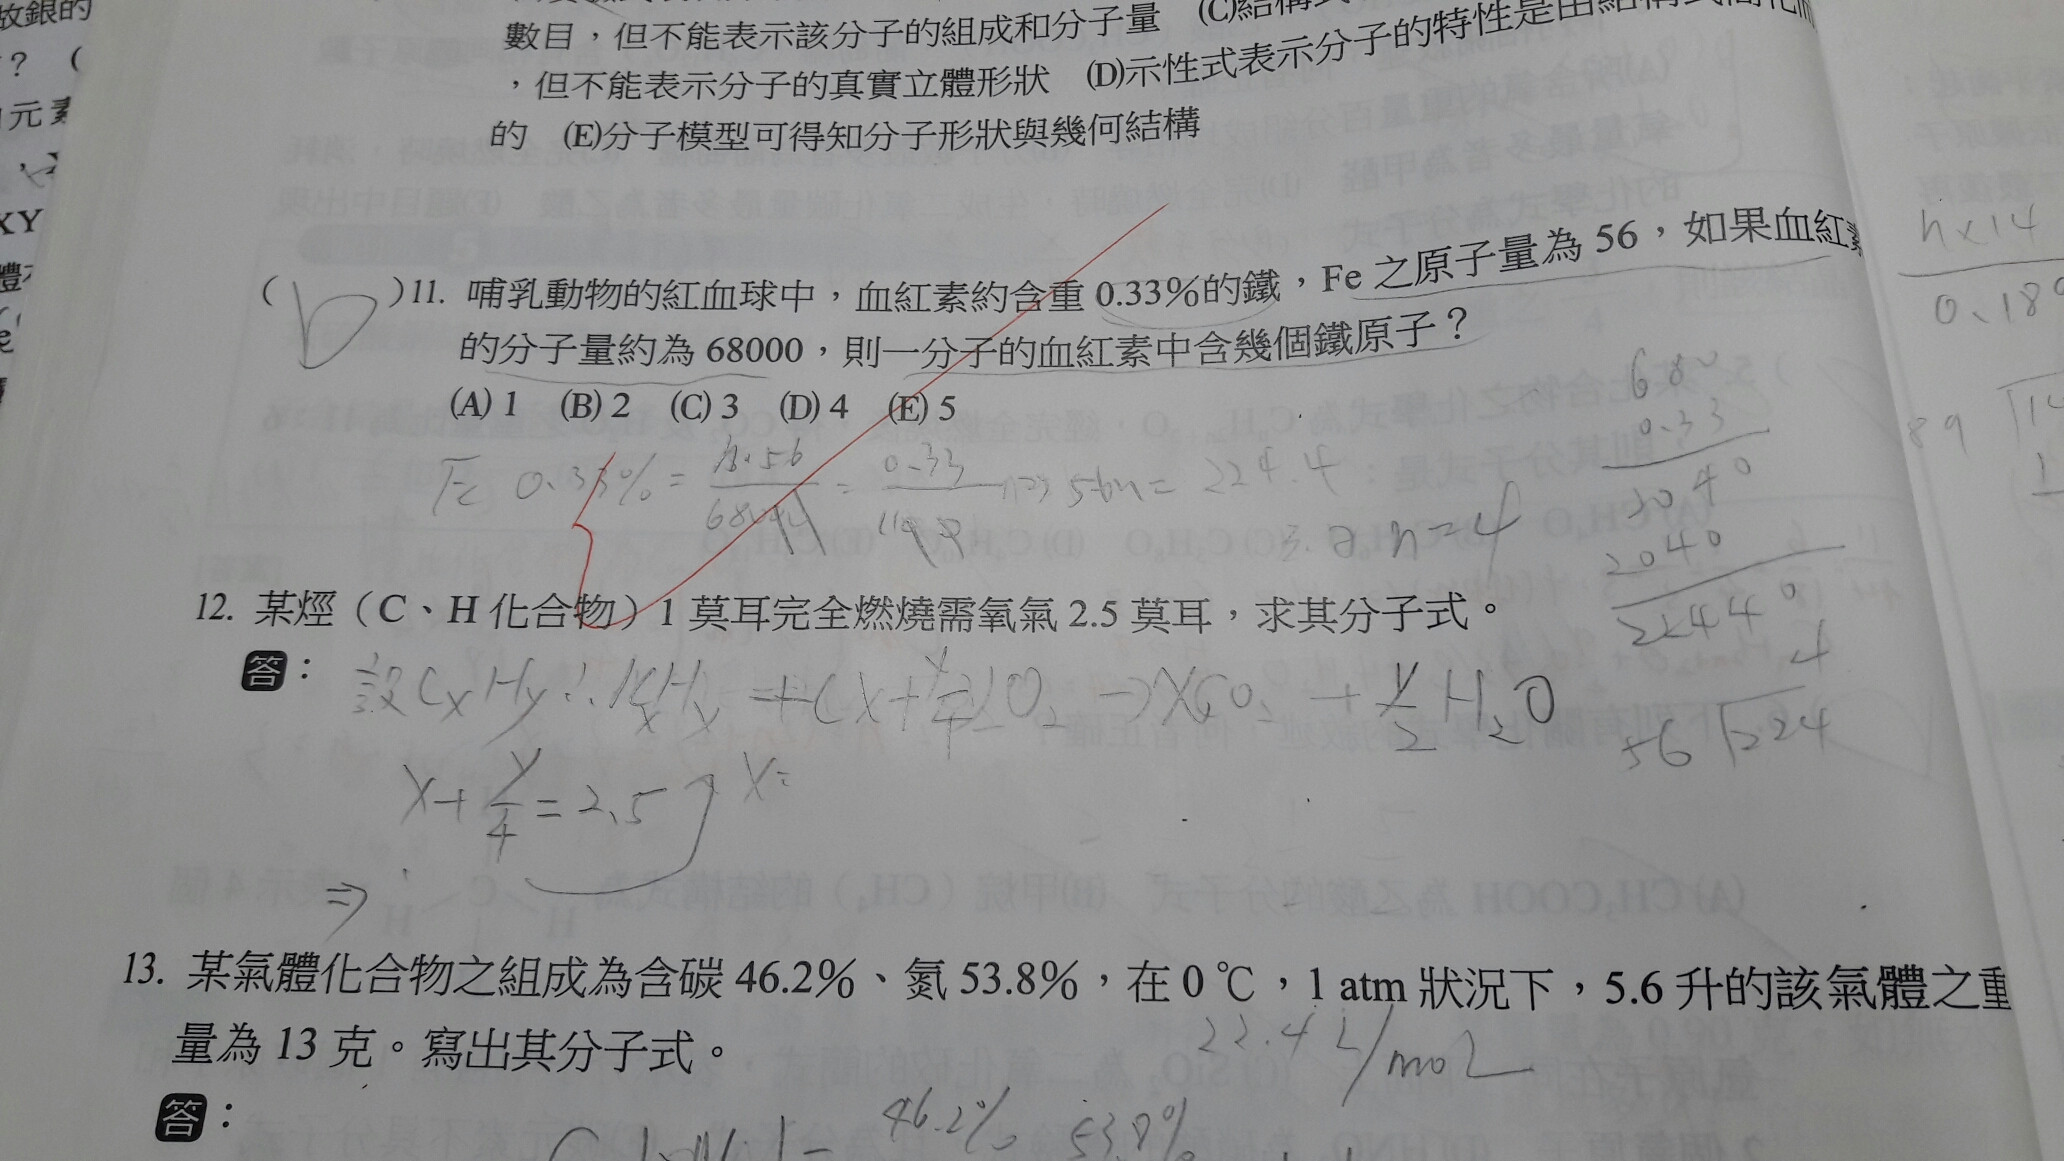 故銀的
數目，但不能表示該分子的組成和分子量　(C)結構式
？（
，但不能表示分子的真實立體形狀　(D)示性式表示分子的特性是由結構式簡化而
元素
的　(E)分子模型可得知分子形狀與幾何結構
XY
n×14
0.18
( D )11. 哺乳動物的紅血球中，血紅素約含重 0.33%的鐵，Fe 之原子量為 56，如果血紅素
的分子量約為 68000，則一分子的血紅素中含幾個鐵原子？
(A) 1　(B) 2　(C) 3　(D) 4　(E) 5
680
0.33
2040
2040
22440
89
Fe 0.33% = n·56 / 680 = 0.33 / 56n = 224.4
n=4
12. 某烴（C、H 化合物）1 莫耳完全燃燒需氧氣 2.5 莫耳，求其分子式。
答：
設CxHy ∴ + (x+y/4)O2 → xCO2 + y/2 H2O
4
56 224
x+y/4=2.5 x=
⇒
13. 某氣體化合物之組成為含碳 46.2%、氮 53.8%，在 0 ℃，1 atm 狀況下，5.6 升的該氣體之重
量為 13 克。寫出其分子式。
22.4 L/mol
答：
46.2% 53.8%